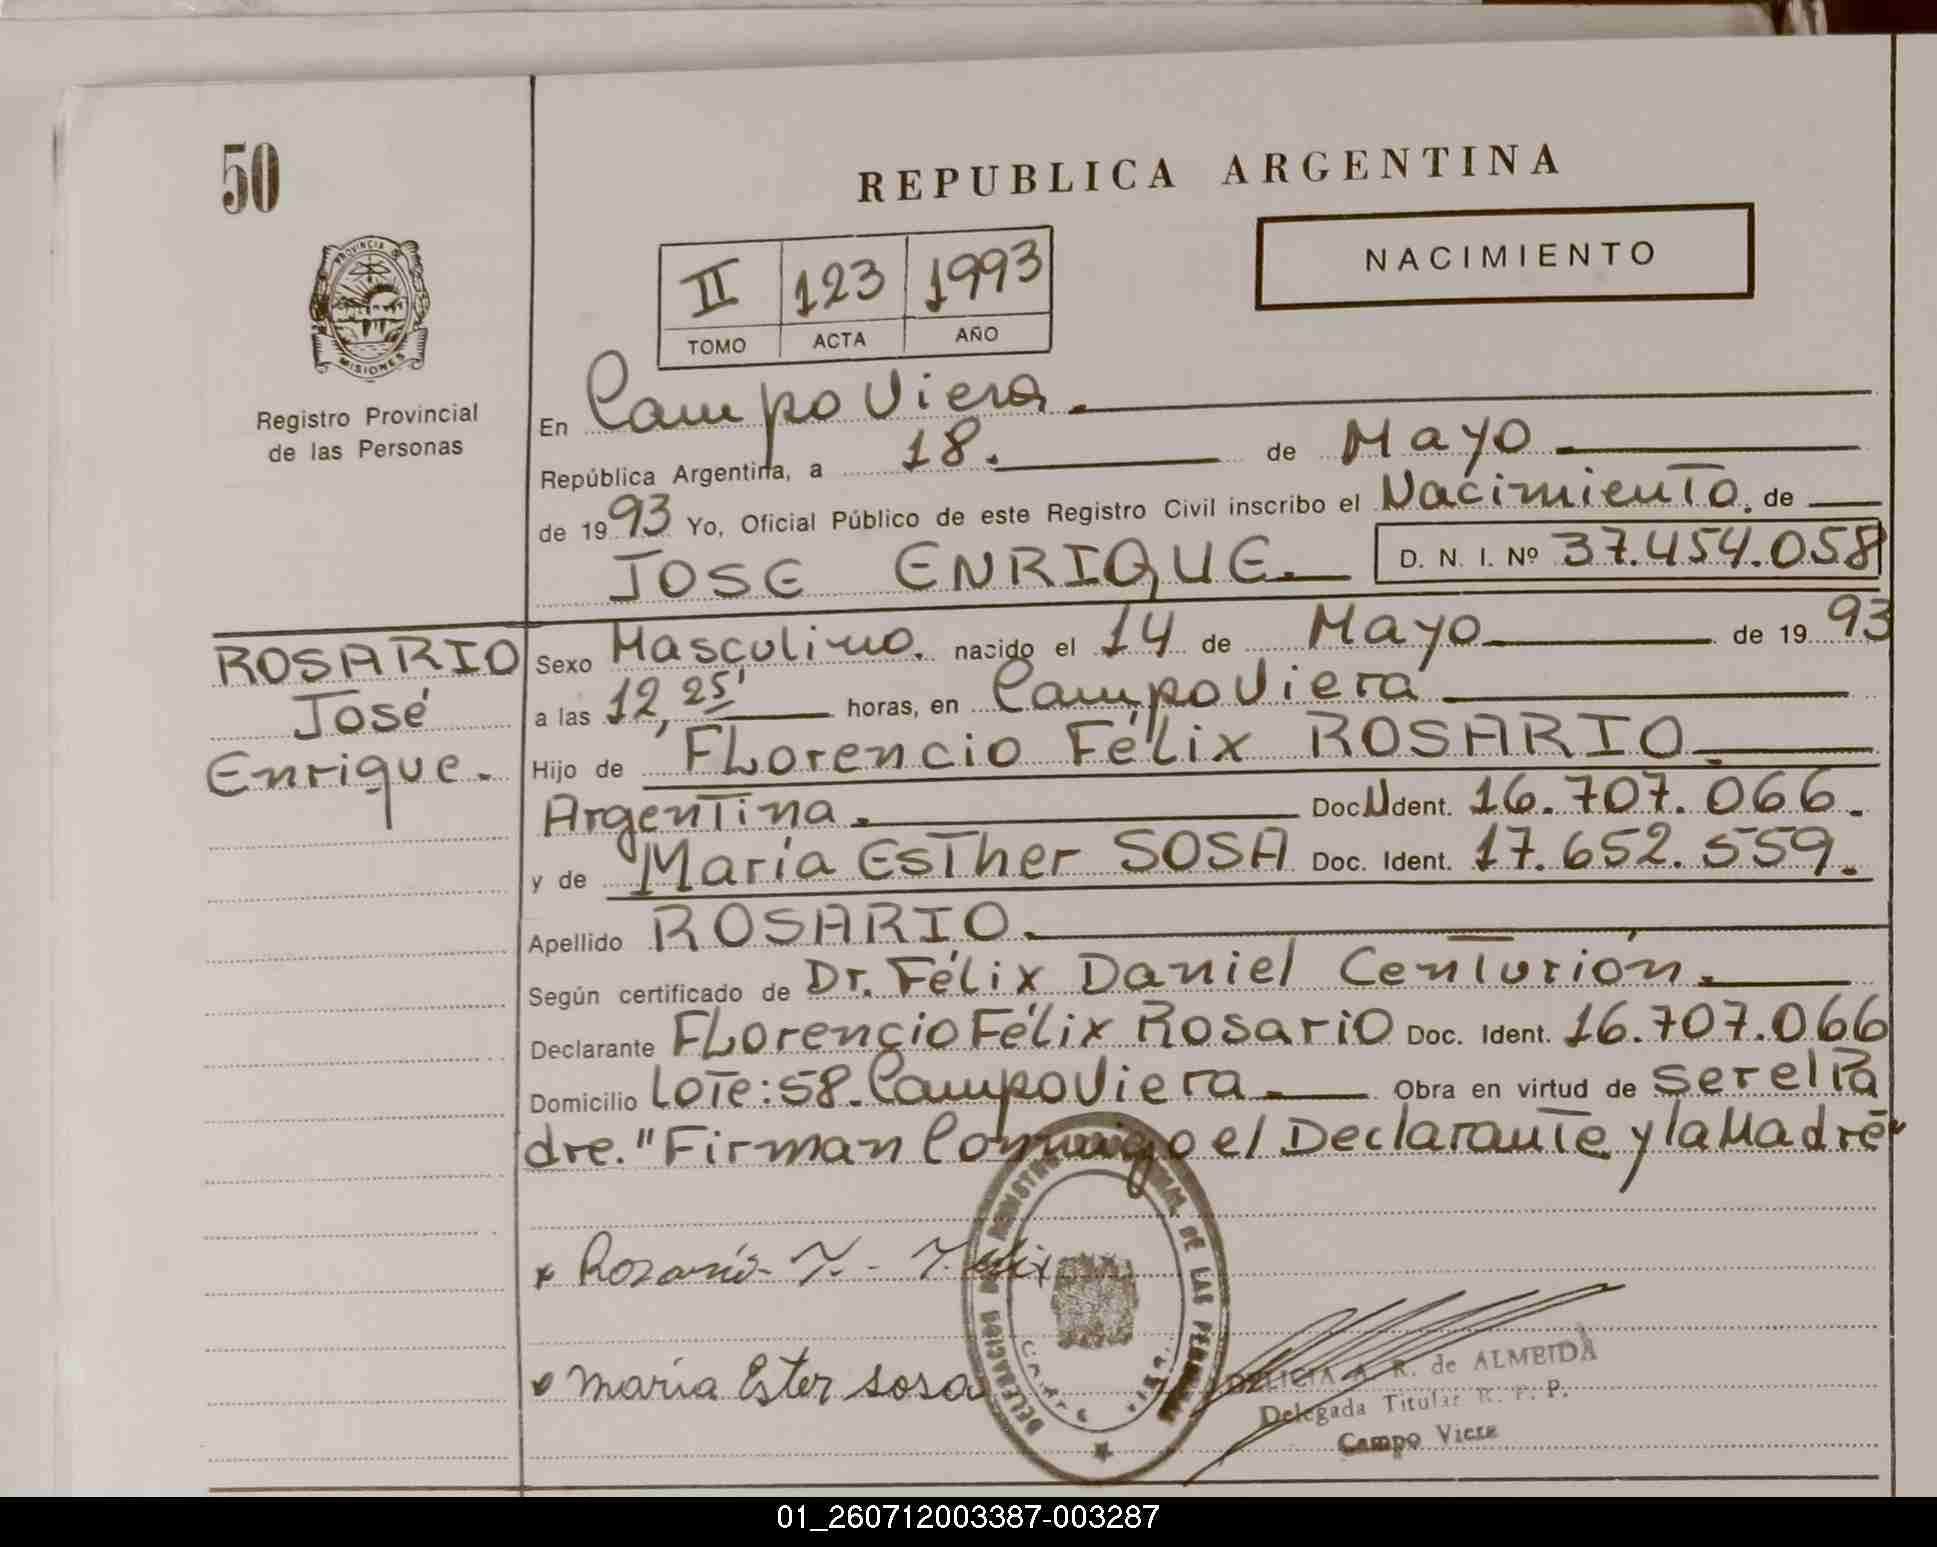 50
REPUBLICA ARGENTINA
NACIMIENTO
II 123 1993
TOMO ACTA AÑO
PROVINCIA DE
MISIONES
Registro Provincial
de las Personas
En Campo Viera.
República Argentina, a 18. de Mayo
de 1993 Yo, Oficial Público de este Registro Civil inscribo el Nacimiento. de
JOSE ENRIQUE. D. N. I. Nº 37.454.058
ROSARIO
José
Enrique.
Sexo Masculino. nacido el 14 de Mayo de 1993
a las 12,25' horas, en Campo Viera
Hijo de Florencio Félix ROSARIO
Argentina. Doc. Ident. 16.707.066.
y de María Esther SOSA Doc. Ident. 17.652.559.
Apellido ROSARIO.
Según certificado de Dr. Félix Daniel Centurión.
Declarante Florencio Félix Rosario Doc. Ident. 16.707.066
Domicilio Lote: 58. Campo Viera. Obra en virtud de ser el Pa
dre. "Firman Conmigo el Declarante y la Madre"
Rosario F. Felix
maria Ester sosa
DELEGACION DE LAS
A. R. de ALMEIDA
Delegada Titular R. P. P.
Campo Viera
01_260712003387-003287